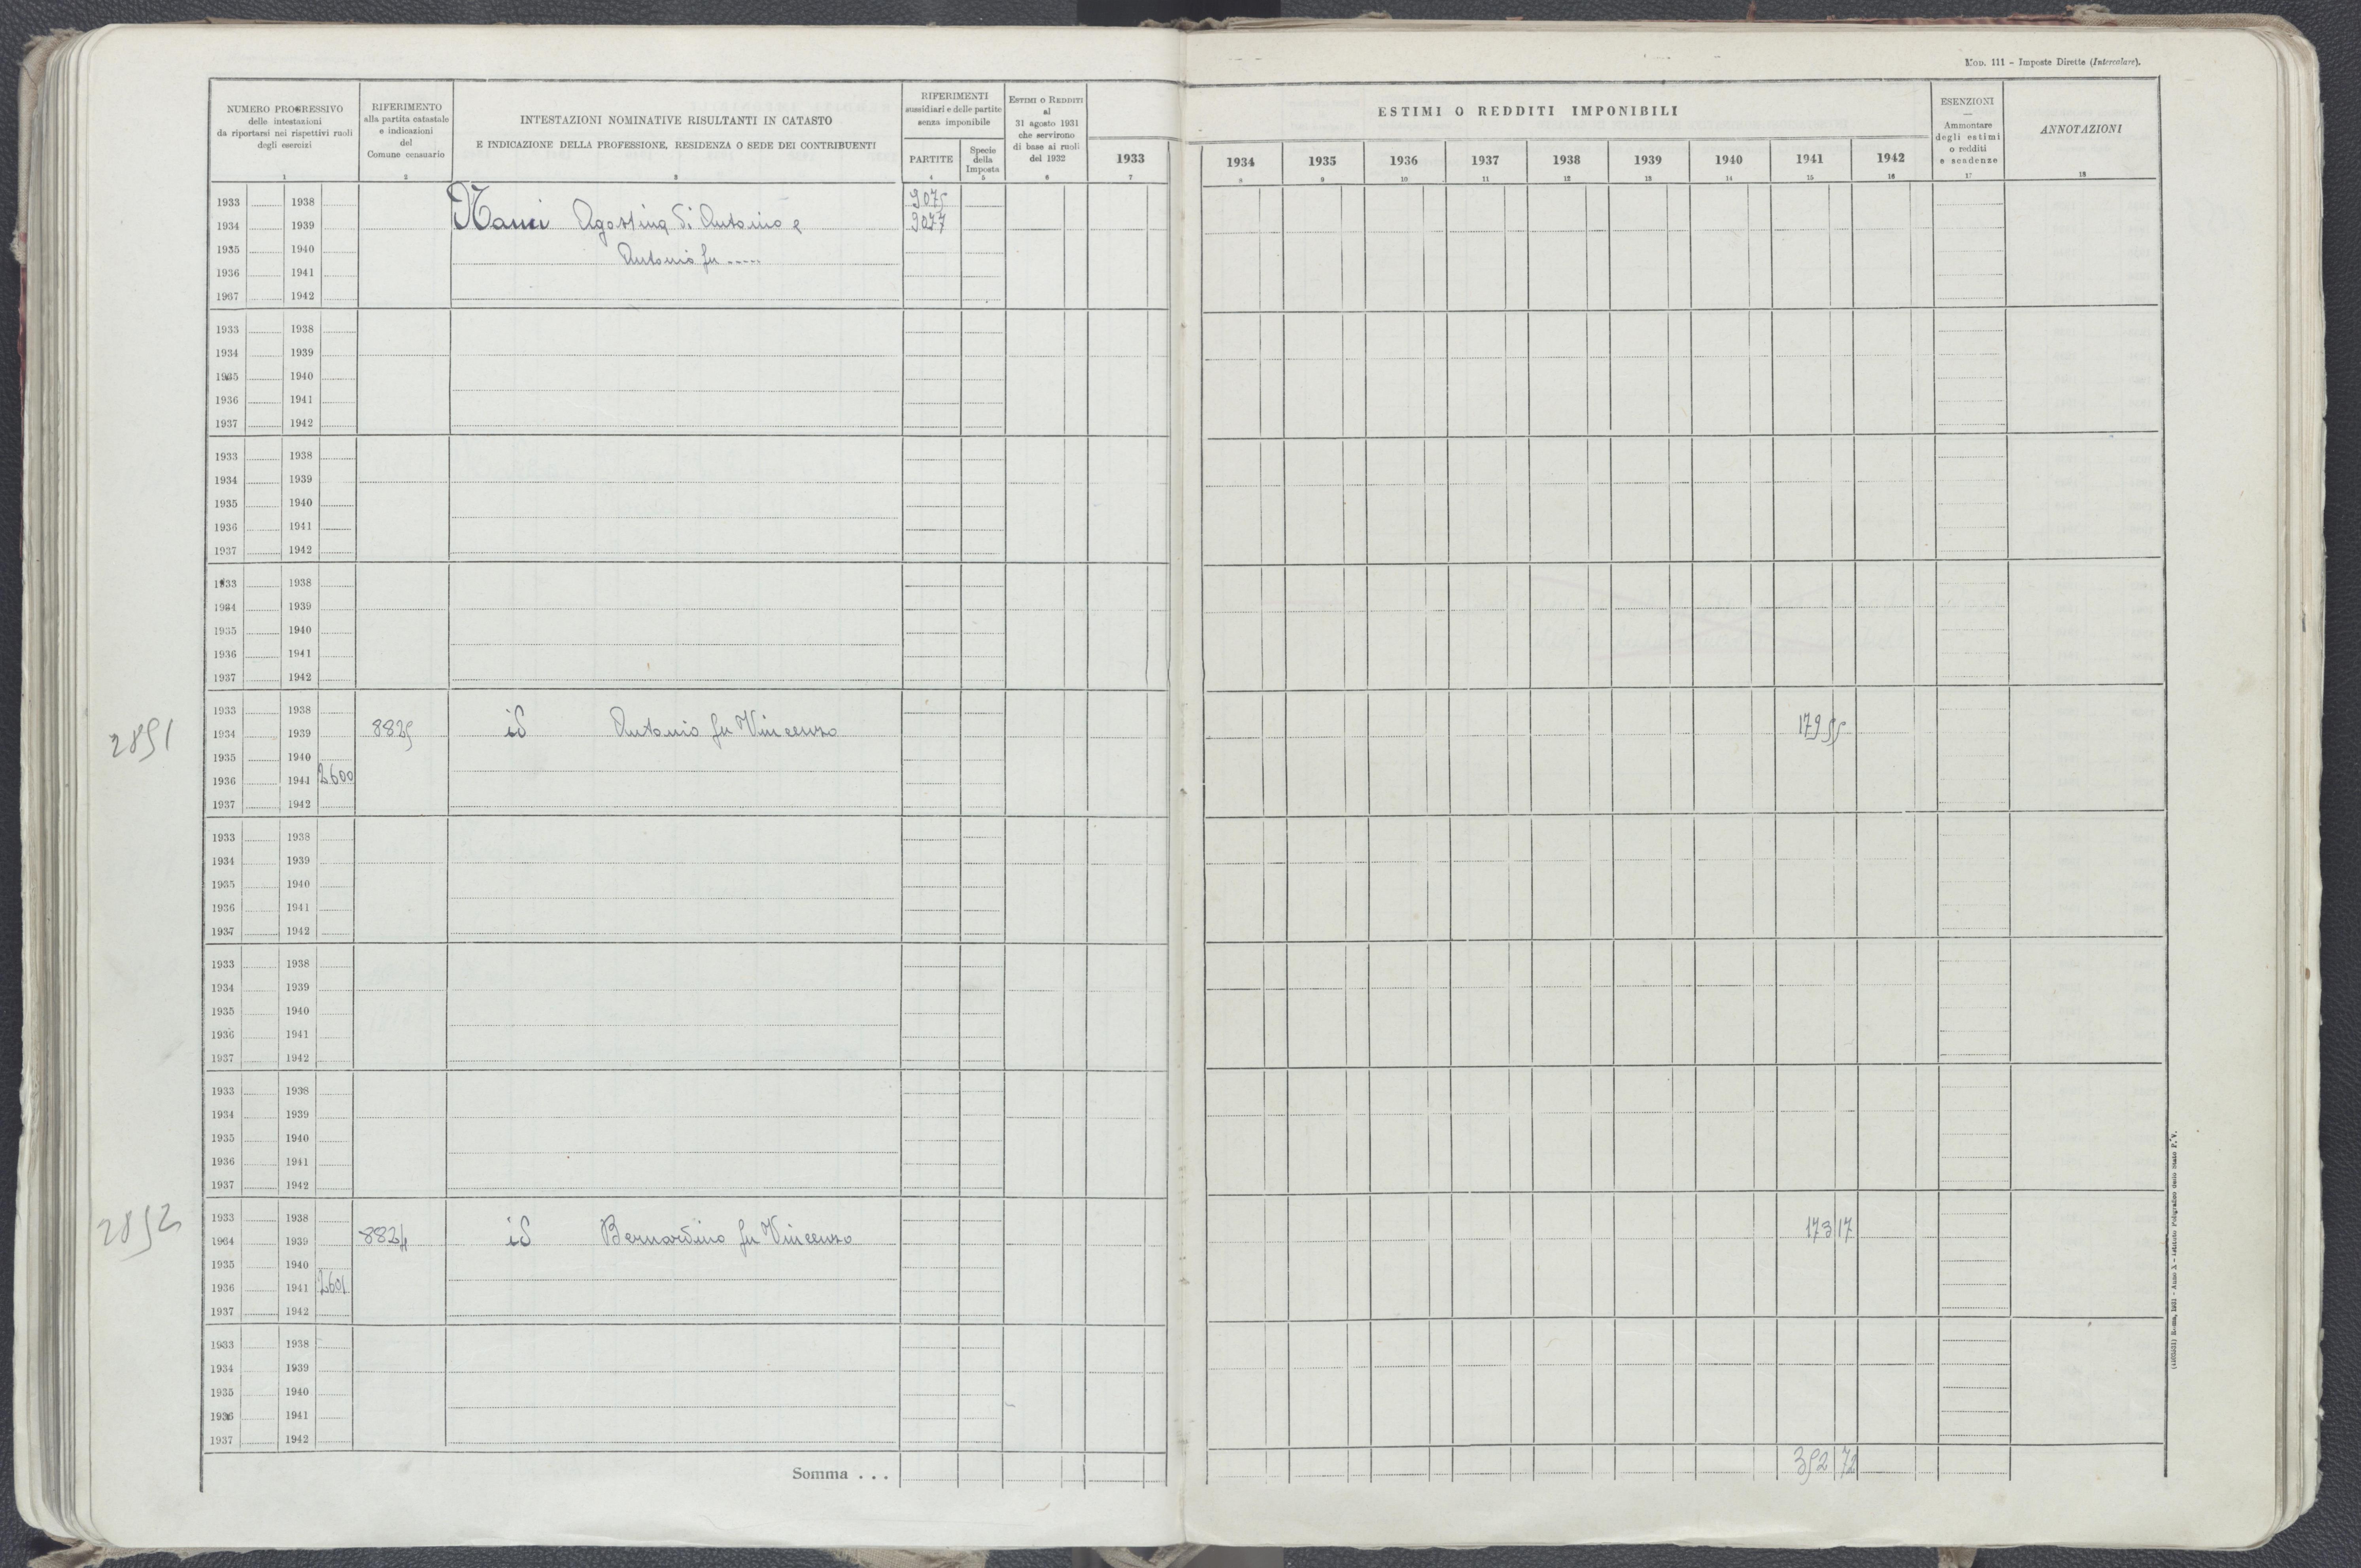 Mod. 111 - Imposte Dirette (Intercalare).
NUMERO PROGRESSIVO
delle intestazioni
da riportarsi nei rispettivi ruoli
degli esercizi
1
RIFERIMENTO
alla partita catastale
e indicazioni
del
Comune censuario
2
INTESTAZIONI NOMINATIVE RISULTANTI IN CATASTO
E INDICAZIONE DELLA PROFESSIONE, RESIDENZA O SEDE DEI CONTRIBUENTI
3
RIFERIMENTI
sussidiari e delle partite
senza imponibile
PARTITE
4
Specie
della
Imposta
5
Estimi o Redditi
al
31 agosto 1931
che servirono
di base ai ruoli
del 1932
6
ESTIMI O REDDITI IMPONIBILI
1933 1934 1935 1936 1937 1938 1939 1940 1941 1942
7 8 9 10 11 12 13 14 15 16
ESENZIONI
—
Ammontare
degli estimi
o redditi
e scadenze
17
ANNOTAZIONI
18
1933 1938 9075
1934 1939 Nanni Agostina di Antonio e 9077
1935 1940 Antonio fu -----
1936 1941
1967 1942
1933 1938
1934 1939
1935 1940
1936 1941
1937 1942
1933 1938
1934 1939
1935 1940
1936 1941
1937 1942
1933 1938
1934 1939
1935 1940
1936 1941
1937 1942
1933 1938
2851 1934 1939 8825 id Antonio fu Vincenzo 179 55
1935 1940
1936 1941 2600
1937 1942
1933 1938
1934 1939
1935 1940
1936 1941
1937 1942
1933 1938
1934 1939
1935 1940
1936 1941
1937 1942
1933 1938
1934 1939
1935 1940
1936 1941
1937 1942
1933 1938
2852 1964 1939 8824 id Bernardino fu Vincenzo 173 17
1935 1940
1936 1941 2601
1937 1942
1933 1938
1934 1939
1935 1940
1936 1941
1937 1942
Somma . . . 352 72